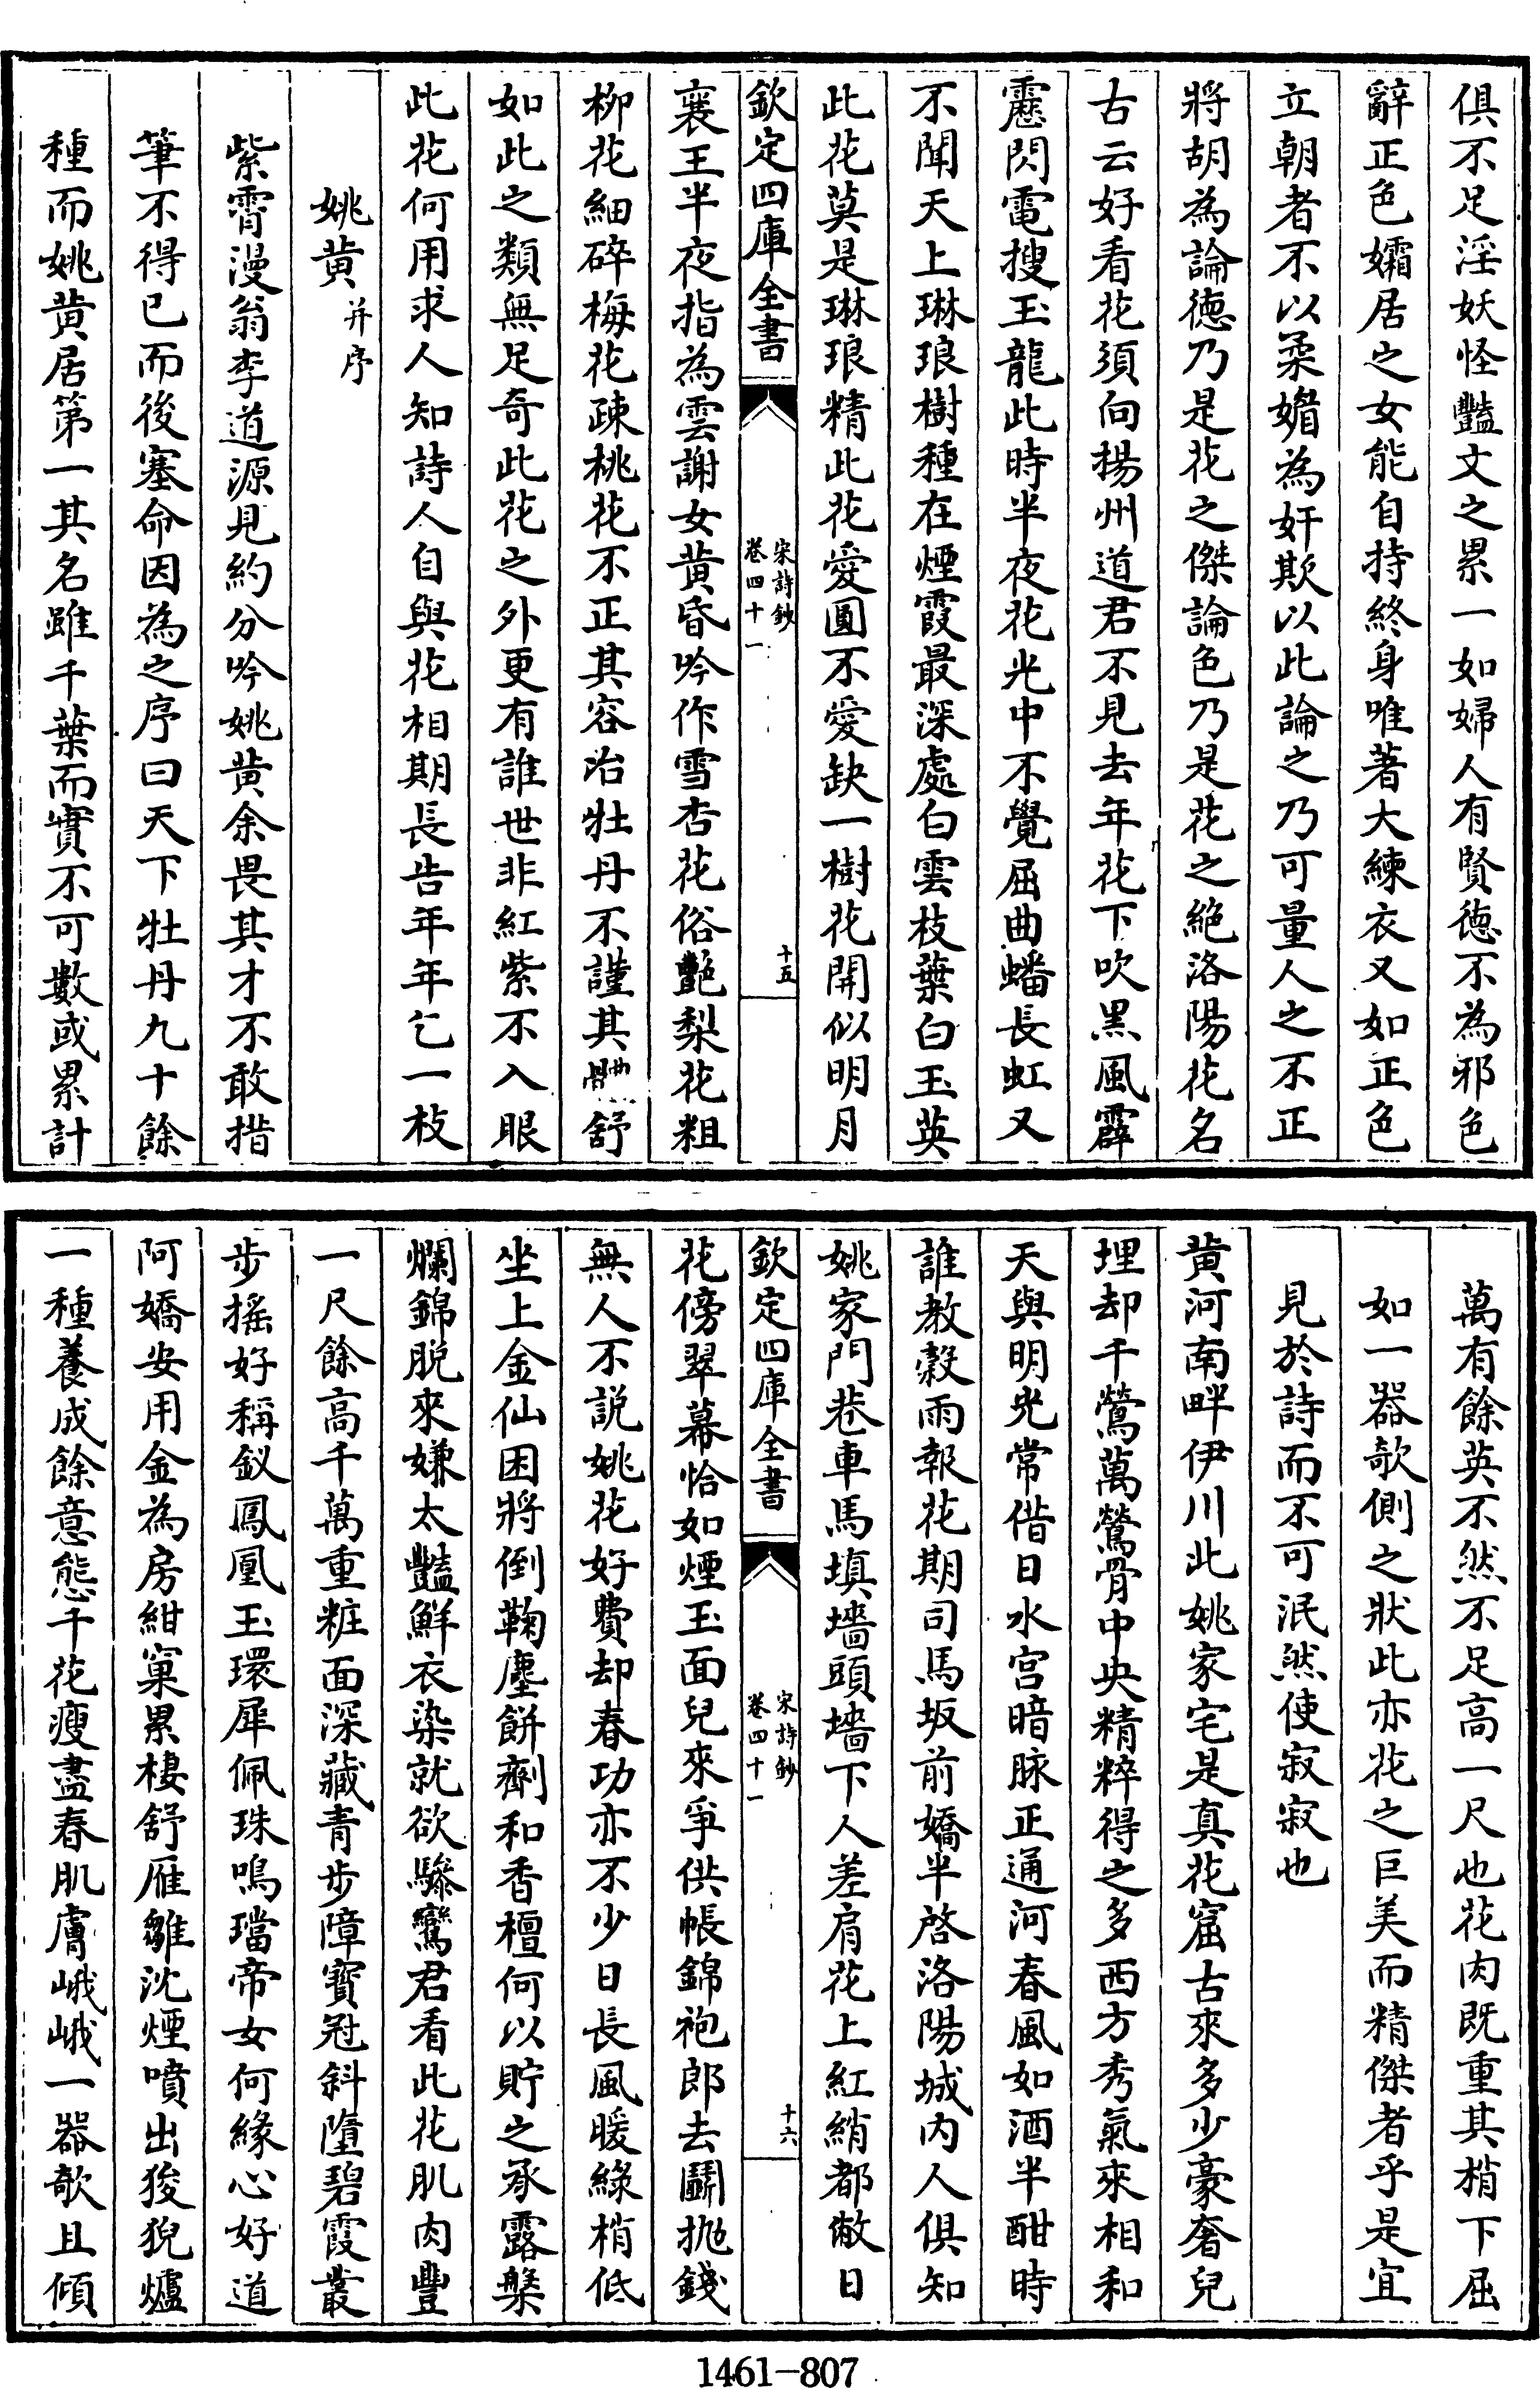 俱不足淫妖怪豔文之累一如婦人有賢徳不為邪色
辭正色孀居之女能自持終身唯著大練衣又如正色
立朝者不以柔媚為奸欺以此論之乃可量人之不正
將胡為論徳乃是花之傑論色乃是花之絶洛陽花名
古云好看花須向揚州道君不見去年花下吹黒風霹
靂閃電搜玉龍此時半夜花光中不覺屈曲蟠長虹又
不聞天上琳琅樹種在煙霞最深處白雲枝葉白玉英
此花莫是琳琅精此花愛圓不愛缺一樹花開似明月
欽定四庫全書
宋詩鈔
卷四十一
十五
襄王半夜指為雲謝女黄昏吟作雪杏花俗艷梨花粗
柳花細碎梅花疎桃花不正其容冶牡丹不謹其體舒
如此之類無足奇此花之外更有誰世非紅紫不入眼
此花何用求人知詩人自與花相期長告年年乞一枝
姚黄并序
紫霄漫翁李道源見約分吟姚黄余畏其才不敢措
筆不得已而後塞命因為之序曰天下牡丹九十餘
種而姚黄居第一其名雖千葉而實不可數或累計
萬有餘英不然不足高一尺也花肉既重其梢下屈
如一器欹側之狀此亦花之巨美而精傑者乎是宜
見於詩而不可泯然使寂寂也
黄河南畔伊川此姚家宅是真花窟古來多少豪奢兒
埋却千鶯萬鶯骨中央精粹得之多西方秀氣來相和
天與明光常借日水宫暗脉正通河春風如酒半酣時
誰教穀雨報花期司馬坂前嬌半啓洛陽城内人俱知
姚家門巷車馬填墻頭墻下人差肩花上紅綃都敝日
欽定四庫全書
宋詩鈔
卷四十一
十六
花傍翠幕恰如煙玉面兒來爭供帳錦袍郎去鬭抛錢
無人不説姚花好費却春功亦不少日長風暖綠梢低
坐上金仙困將倒鞠塵餅劑和香檀何以貯之承露槃
爛錦脱來嫌太豔鮮衣染就欲驂鸞君看此花肌肉豐
一尺餘高千萬重粧面深藏青步障寶冠斜墮碧霞叢
步摇好稱釵鳳凰玉環犀佩珠鳴璫帝女何緣心好道
阿嬌安用金為房紺窠累棲舒雁雛沈煙噴出狻猊爐
一種養成餘意態千花瘦盡春肌膚峨峨一器欹且傾
1461-807